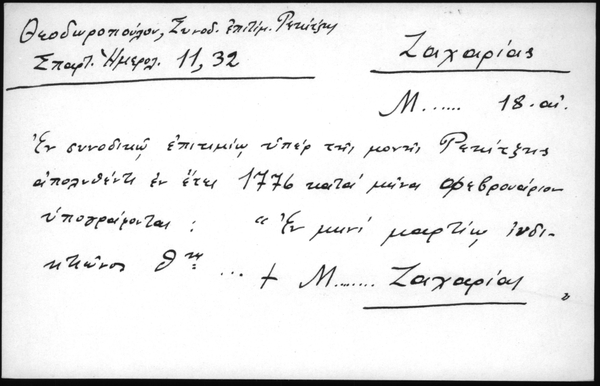 Θεοδωροπούλου, Συνοδ. ἐπιτίμ. Ρεκίτζης
Σπαρτ. Ἡμερολ. 11, 32
Ζαχαρίας
Μ...... 18. αἰ.
Ἐν συνοδικῷ ἐπιτιμίῳ ὑπὲρ τῆς μονῆς Ρεκίτζης
ἀπολυθέντι ἐν ἔτει 1776 κατὰ μῆνα Φεβρουάριον
ὑπογράφονται : "Ἐν μηνὶ μαρτίῳ ἰνδι-
κτιῶνος θης ... + Μ....... Ζαχαρίας